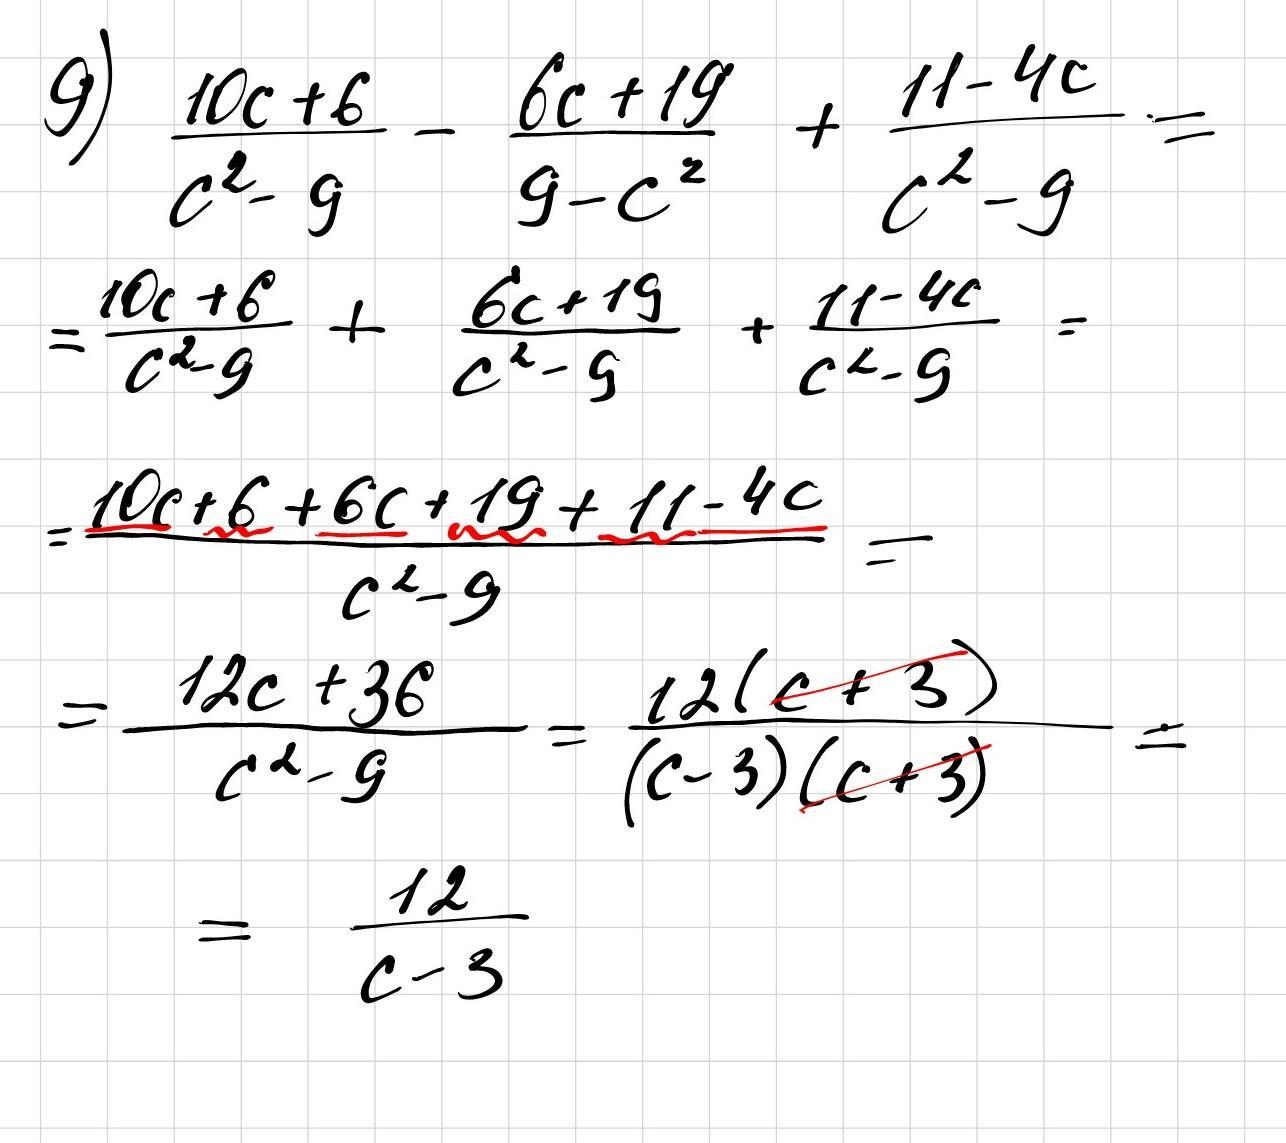 9) (10c+6)/(c²-9) - (6c+19)/(9-c²) + (11-4c)/(c²-9) =
= (10c+6)/(c²-9) + (6c+19)/(c²-9) + (11-4c)/(c²-9) =
= (10c+6+6c+19+11-4c)/(c²-9) =
= (12c+36)/(c²-9) = 12(c+3)/((c-3)(c+3)) =
= 12/(c-3)